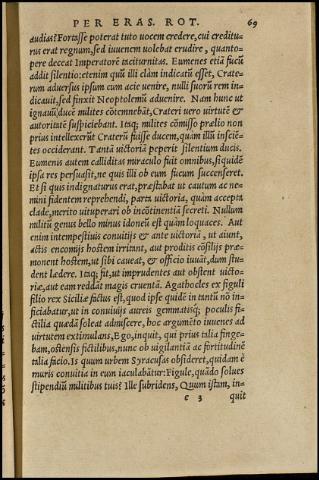 PER ERAS. ROT. 69
audias? Forasse poterat tuto uocem credere, cui creditu-
rus erat regnum, sed iuuenem uolebat erudire, quanto-
pere deceat Imperatorẽ taciturnitas. Eumenes etiã fucũ
addit silentio: etenim quũ illi clàm indicatũ esset, Crate-
rum aduersus ipsum cum acie uenire, nulli suorũ rem in-
dicauit, sed finxit Neoptolemũ aduenire. Nam hunc ut
ignauũ ducẽ milites cõtemnebãt, Crateri uero uirtutẽ &
autoritatẽ suspiciebant. Itaq; milites cõmisso prælio non
prius intellexerũt Craterũ fuisse ducem, quàm illũ insciẽ-
tes occiderant. Tantã uictoriã peperit silentium ducis.
Eumenis autem calliditas miraculo fuit omnibus, siquidẽ
ipsa res persuasit, ne quis illi ob eum fucum succenseret.
Et si quis indignaturus erat, præstabat ut cautum ac ne-
mini fidentem reprehendi, parta uictoria, quàm accepta
clade, merito uituperari ob incõtinentiã secreti. Nullum
militũ genus bello minus idoneũ est quàm loquaces. Aut
enim intempestiuis conuitijs & ante uictoriã, ut aiunt,
actis encomijs hostem irritant, aut proditis cõsilijs præ-
monent hostem, ut sibi caueat, & officio iuuãt, dum stu-
dent lædere. Itaq; fit, ut imprudentes aut obstent uicto-
riæ, aut eam reddãt magis cruentã. Agathocles ex figuli
filio rex Siciliæ factus est, quod ipse quidẽ in tantũ nõ in-
ficiabatur, ut in conuiuijs aureis gemmatisq; poculis fi-
ctilia quædã soleat admiscere, hoc argumẽto iuuenes ad
uirtutem extimulans, Ego, inquit, qui prius talia finge-
bam, ostensis fictilibus, nunc ob uigilantiã ac fortitudinẽ
talia facio. Is quum urbem Syracusas obsideret, quidam è
muris conuitia in eum iaculabãtur: Figule, quãdo solues
stipendiũ militibus tuis? Ille subridens, Quum istam, in-
e 3 quit